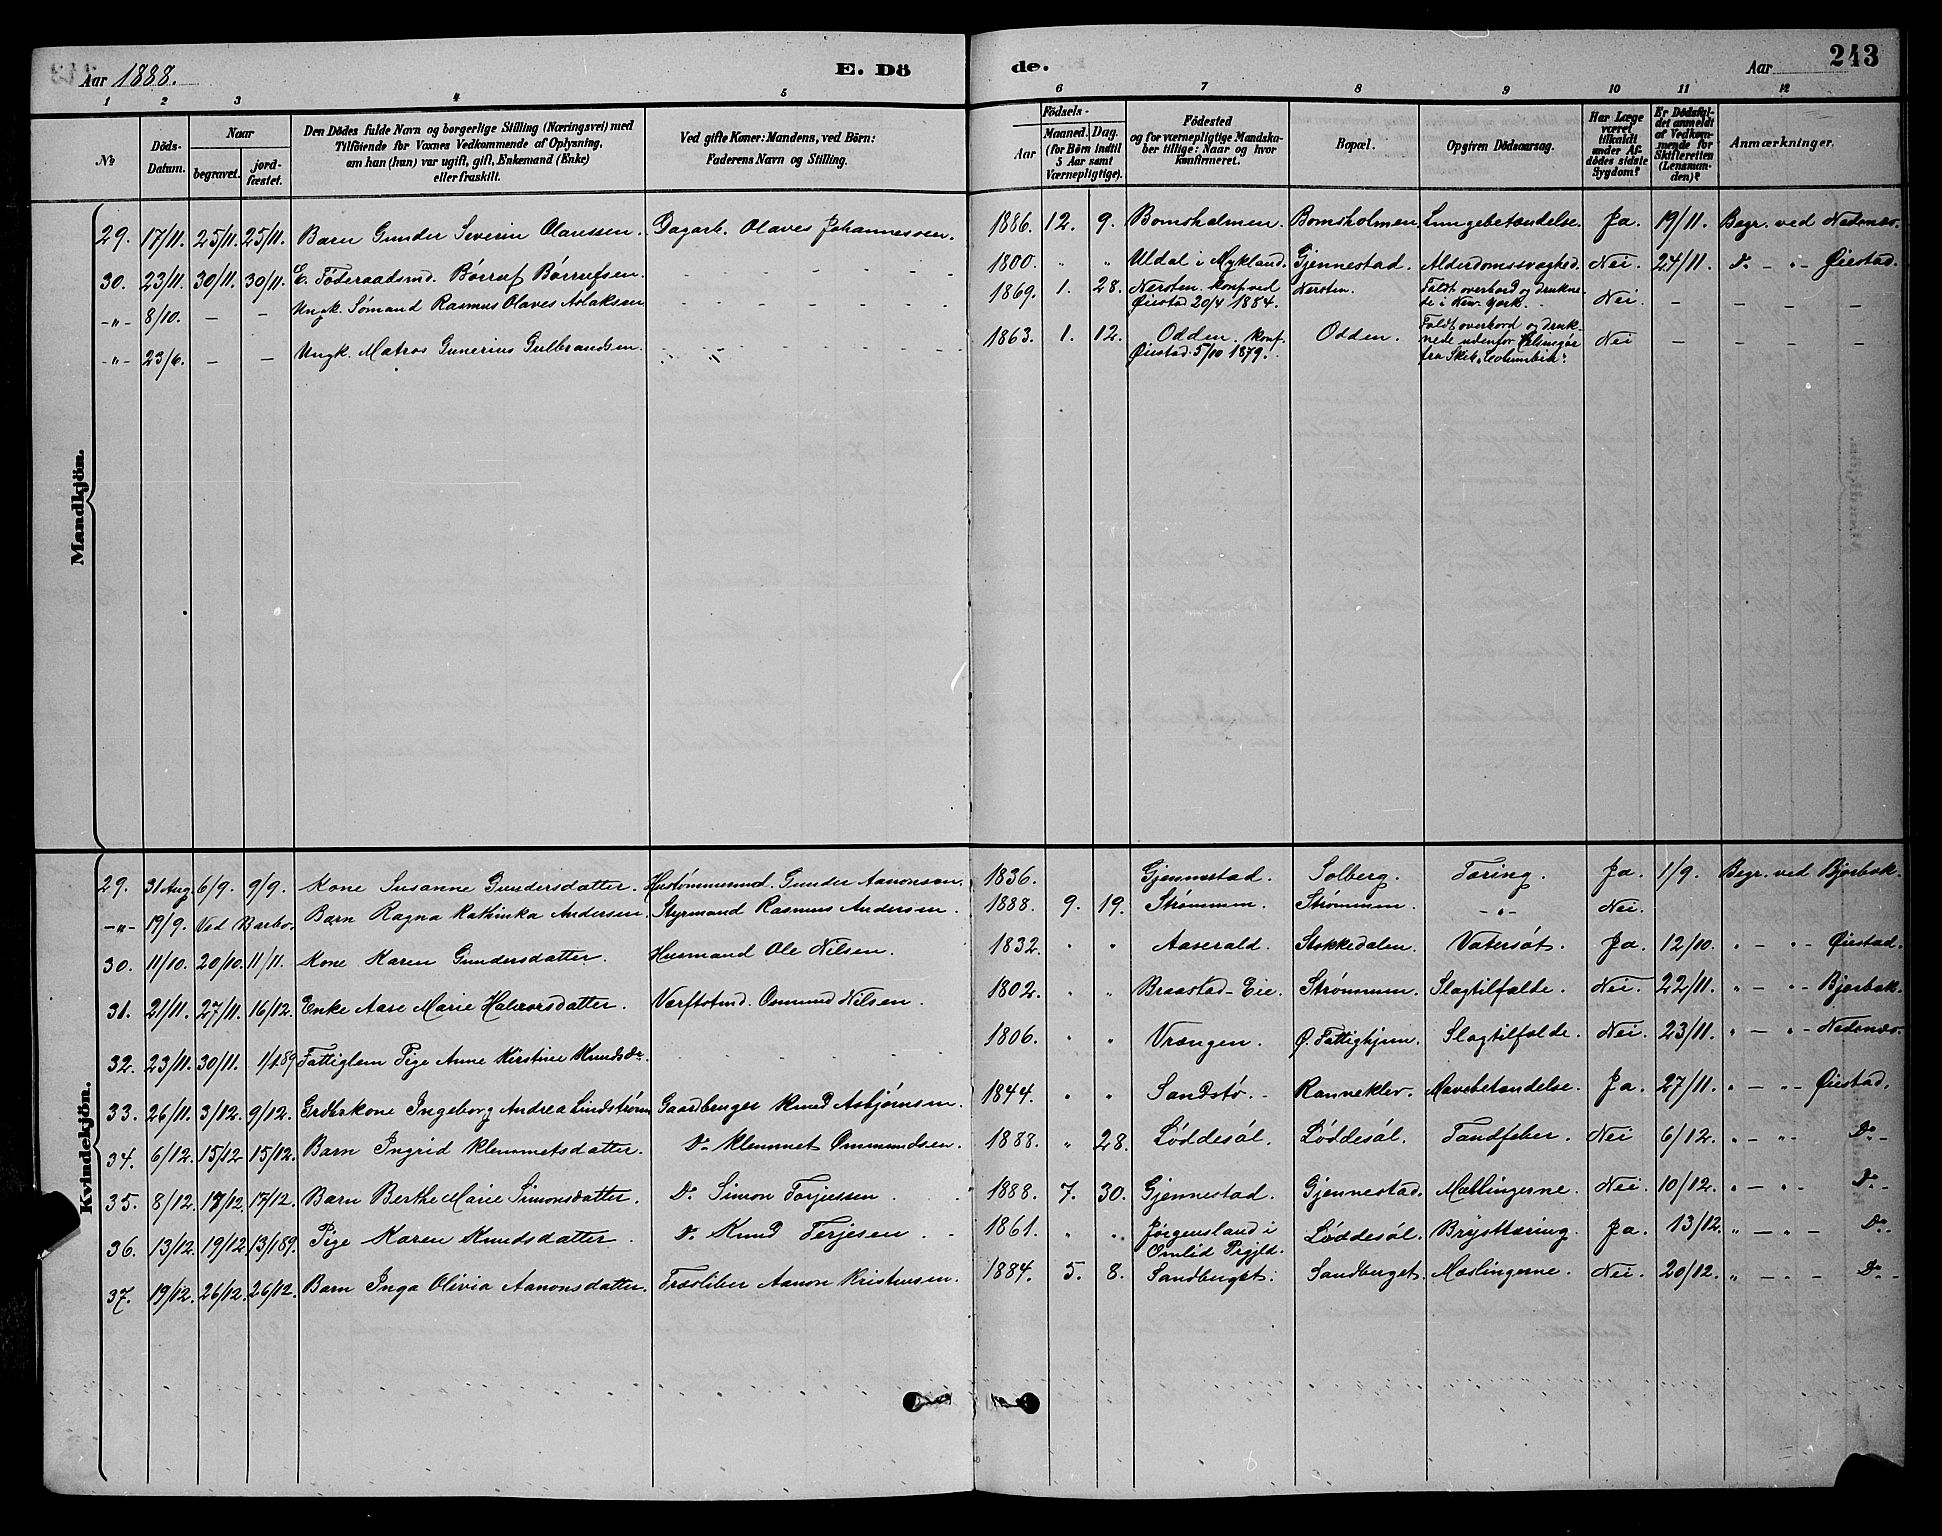 243
Aar 1888. E. Dö de. Aar
1 2 3 4 5 6 7 8 9 10 11 12
№
Döds-Datum.
Naar
begravet.
jord-fæstet.
Den Dödes fulde Navn og borgerlige Stilling (Næringsvei) med
Tilföiende for Voxnes Vedkommende af Oplysning,
om han (hun) var ugift, gift, Enkemand (Enke)
eller fraskilt.
Ved gifte Koner: Mandens, ved Börn:
Faderens Navn og Stilling.
Födsels-
Aar
Maaned. Dag.
(for Börn indtil
5 Aar samt
Værnepligtige).
Födested
og for værnepligtige Mandska-
ber tillige: Naar og hvor
konfirmeret.
Bopæl.
Opgiven Dödsaarsag.
Har Læge
været
tilkaldt
under Af-
dödes sidste
Sygdom?
Er Dödsfal-
det anmeldt
af Vedkom-
mende for
Skifteretten
(Lensman-
den)?
Anmærkninger.
Mandkjön.
29. 17/11. 25/11. 25/11. Barn Gunder Severin Olavessen. Dagarb. Olaves Johannessen. 1886. 12. 9. Bomsholmen. Bomsholmen. Lungebetændelse. Ja. 19/11. Begr. ved Nedenæs.
30. 23/11. 30/11. 30/11. E. Föderaadsmd. Börruf Börrufsen. - - - - - 1800. " " Uldal i Mykland. Gjennestad. Alderdomssvaghed. Nei. 24/11. Do - " - Øiestad.
-"- 8/10. - - Ungk. Sömand Rasmus Olaves Aslaksen - - - - - 1869. 1. 28. Nersten. konf. ved Øiestad 20/4 1884. Nersten. Faldt overbord og druknede i New-York. Nei. - - - -
-"- 23/6. - - Ungk. Matros Gunerius Gulbrandsen. - - - - - 1863. 1. 12. Odden. konf. Øiestad 5/10 1879. Odden. Faldt overbord og druknede udenfor Helsingør fra Skib "Columbia". Nei - - - -
Kvindekjön.
29. 31 Aug. 6/9. 9/9. Kone Susanne Gundersdatter. Hustømmermd. Gunder Aanonsen. 1836. Gjennestad. Solberg. Tæring. Ja. 1/9. Begr. ved Bjorbæk.
-"- 19/9. Ved Barbo. Barn Ragna Kathinka Andersen. Styrmand Rasmus Andersen. 1888. 9. 19. Strømmen. Strømmen. -"- Nei.
30. 11/10. 20/10. 11/11. Kone Karen Gundersdatter. Husmand Ole Nilsen. 1832. " " Aaserald. Stokkedalen. Vatersot. Ja. 12/10. " - " - Øiestad.
31. 21/11. 27/11. 16/12. Enke Aase Marie Halvorsdatter. Værftstmd. Osmund Nilsen. 1802. " " Braastad-Eie. Strømmen. Slagtilfælde. Nei. 22/11. " - " - Bjorbæk.
32. 23/11. 30/11. 1/1 89. Fattiglem Pige Anne Kirstine Knudsdr. - - - - - 1806. " " Vrængen. Ø. Fattighjem. Slagtilfælde. Nei. 23/11. " - " - Nedenæs.
33. 26/11. 3/12. 9/12. Grdbrkone Ingeborg Andrea Lindstrøm. Gaardbruger Knud Asbjørnsen. 1844. " " Sandstø. Ranneklev. Mavebetændelse. Ja. 27/11. " - " - Øiestad.
34. 6/12. 15/12 15/12. Barn Ingrid Klemmetsdatter. Do Klemmet Ommundsen. 1888. " 28. Løddesøl. Løddesøl. Tandfeber. Nei 6/12. " - " - Do -
35. 8/12. 17/12. 17/12. Barn Berthe Marie Simonsdatter. Do Simon Torjessen. 1888. 7. 30. Gjennestad. Gjennestad. Mæslingerne. Nei. 10/12. " - " - Do -
36. 13/12. 19/12 13/1 89. Pige Karen Knudsdatter. Do Knud Terjesen. 1861. " " Jørgensland i Omlid Prgjld. Løddesøl. Brysttæring. Ja. 13/12 " - " - Do -
37. 19/12. 26/12. 26/12. Barn Inga Olivia Aanonsdatter. Træsliber Aanon Kristensen. 1884. 5. 8. Sandberget. Sandberget. Mæslingerne. Nei. 20/12. " - " - Do -